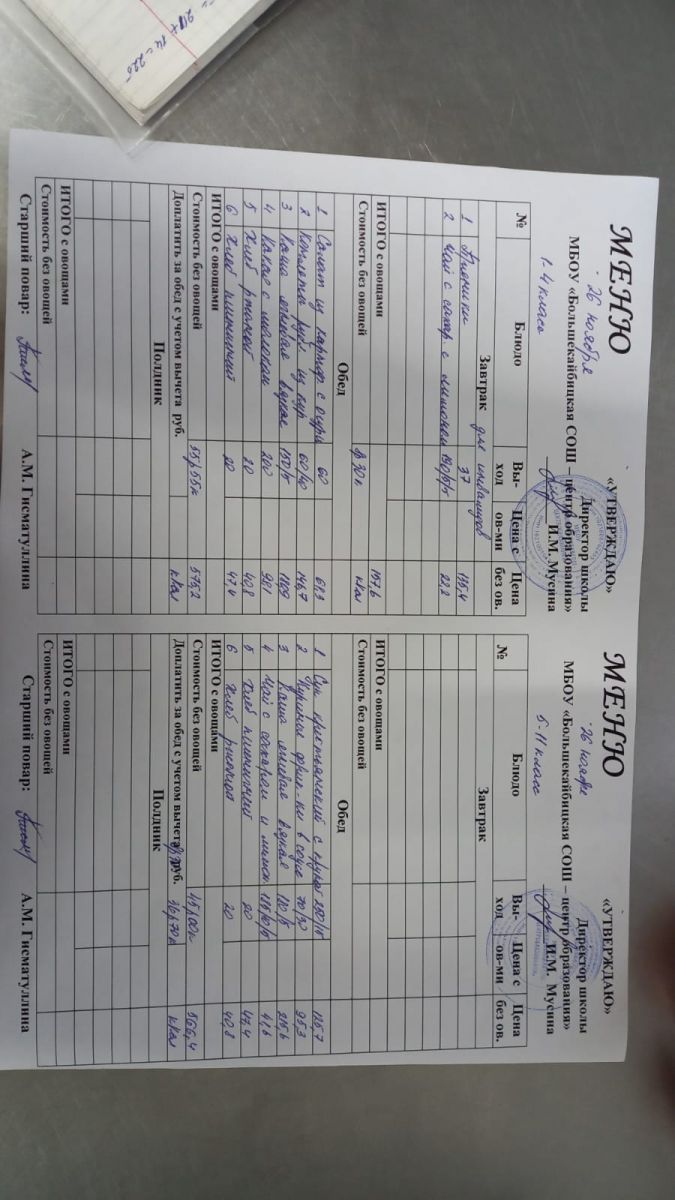 МЕНЮ
26 ноября
МБОУ «Большекайбицкая СОШ – центр образования»
1-4 класс
«УТВЕРЖДАЮ»
Директор школы
И.М. Мусина
№ Блюдо Вы-ход Цена с ов-ми Цена без ов.
Завтрак для инвалидов
1 37 115,4
2 Чай с сахар. с лимоном 22,2
ИТОГО с овощами 137,6
Стоимость без овощей ккал
Обед
1 Салат из картоф. с огурц 60 61,3
2 Котлета руб. из кур 60/40 146,7
3 Каша вязкая 150/5
4 Какао с молоком 200 98,1
5 Хлеб ржаной 20 40,8
6 Хлеб пшеничный 20 47,4
ИТОГО с овощами 575,2
Стоимость без овощей 55р55к ккал
Доплатить за обед с учетом вычета руб.
Полдник
ИТОГО с овощами
Стоимость без овощей
Старший повар: А.М. Гисматуллина
МЕНЮ
26 ноября
МБОУ «Большекайбицкая СОШ – центр образования»
5-11 класс
«УТВЕРЖДАЮ»
Директор школы
И.М. Мусина
№ Блюдо Вы-ход Цена с ов-ми Цена без ов.
Завтрак
ИТОГО с овощами
Стоимость без овощей
Обед
1 Суп крестьянский с крупой 125,7
2 в соусе 70/30 95,3
3 Каша вязкая
4 Чай с сахаром и лимон 41,6
5 Хлеб пшеничный 20 47,4
6 Хлеб ржаной 20 40,8
ИТОГО с овощами
Стоимость без овощей 566,4
Доплатить за обед с учетом вычета руб. 36р70к ккал
Полдник
ИТОГО с овощами
Стоимость без овощей
Старший повар: А.М. Гисматуллина